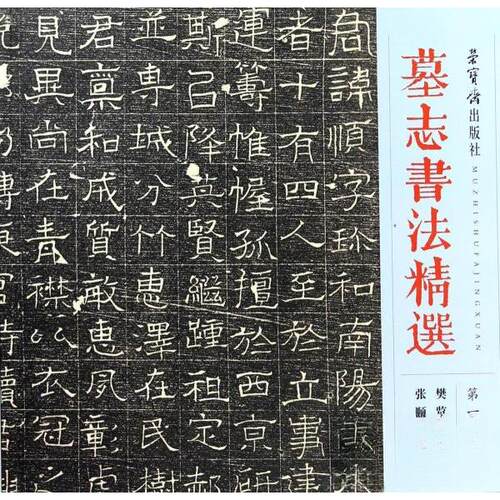 榮寶齋出版社
墓志書法精選
MUZHISHUFAJINGXUAN
第一
樊览
张颐
君諱順字珎和南陽
十有四人至於立事建
運籌惟幄孤擅於西京研
斯己陞英賢繼踵祖定郝
並専城分竹惠澤在民樹
君稟和成質敏惠夙彰
見異尚在青襟公衣冠